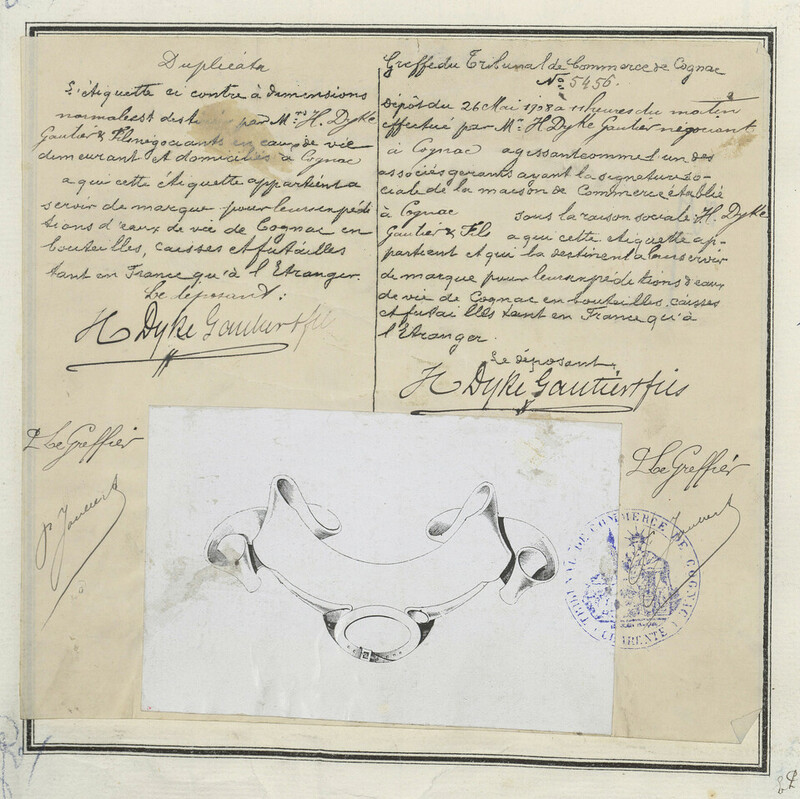 Duplicata
L'étiquette ci contre à dimensions
normales est destinée par Mrs H. Dyke
Gautier & Fils négociants en eaux de vie
demeurant et domiciliés à Cognac
a qui cette étiquette appartient a
servir de marque pour leurs expédi
tions d'eaux de vie de Cognac en
bouteilles, caisses et futailles
tant en France qu'à l'Etranger.
Le déposant:
H Dyke Gautier & fils
P Le Greffier
Greffe du Tribunal de Commerce de Cognac
No 5456.
Dépôt du 26 Mai 1908 à 11 heures du matin
effectué par Mr. H Dyke Gautier négociant
à Cognac agissant comme l'un des
associés gerants ayant la signature so-
ciale de la maison de Commerce établie
à Cognac sous la raison sociale H. Dyke
Gautier & Fils a qui cette etiquette ap-
partient et qui la destinent a leur servir
de marque pour leurs expéditions d'eaux
de vie de Cognac en bouteilles, caisses
et futailles tant en France qu'à
l'Etranger.
Le déposant
H Dyke Gautier & fils
P Le Greffier
TRIBUNAL DE COMMERCE DE COGNAC
CHARENTE